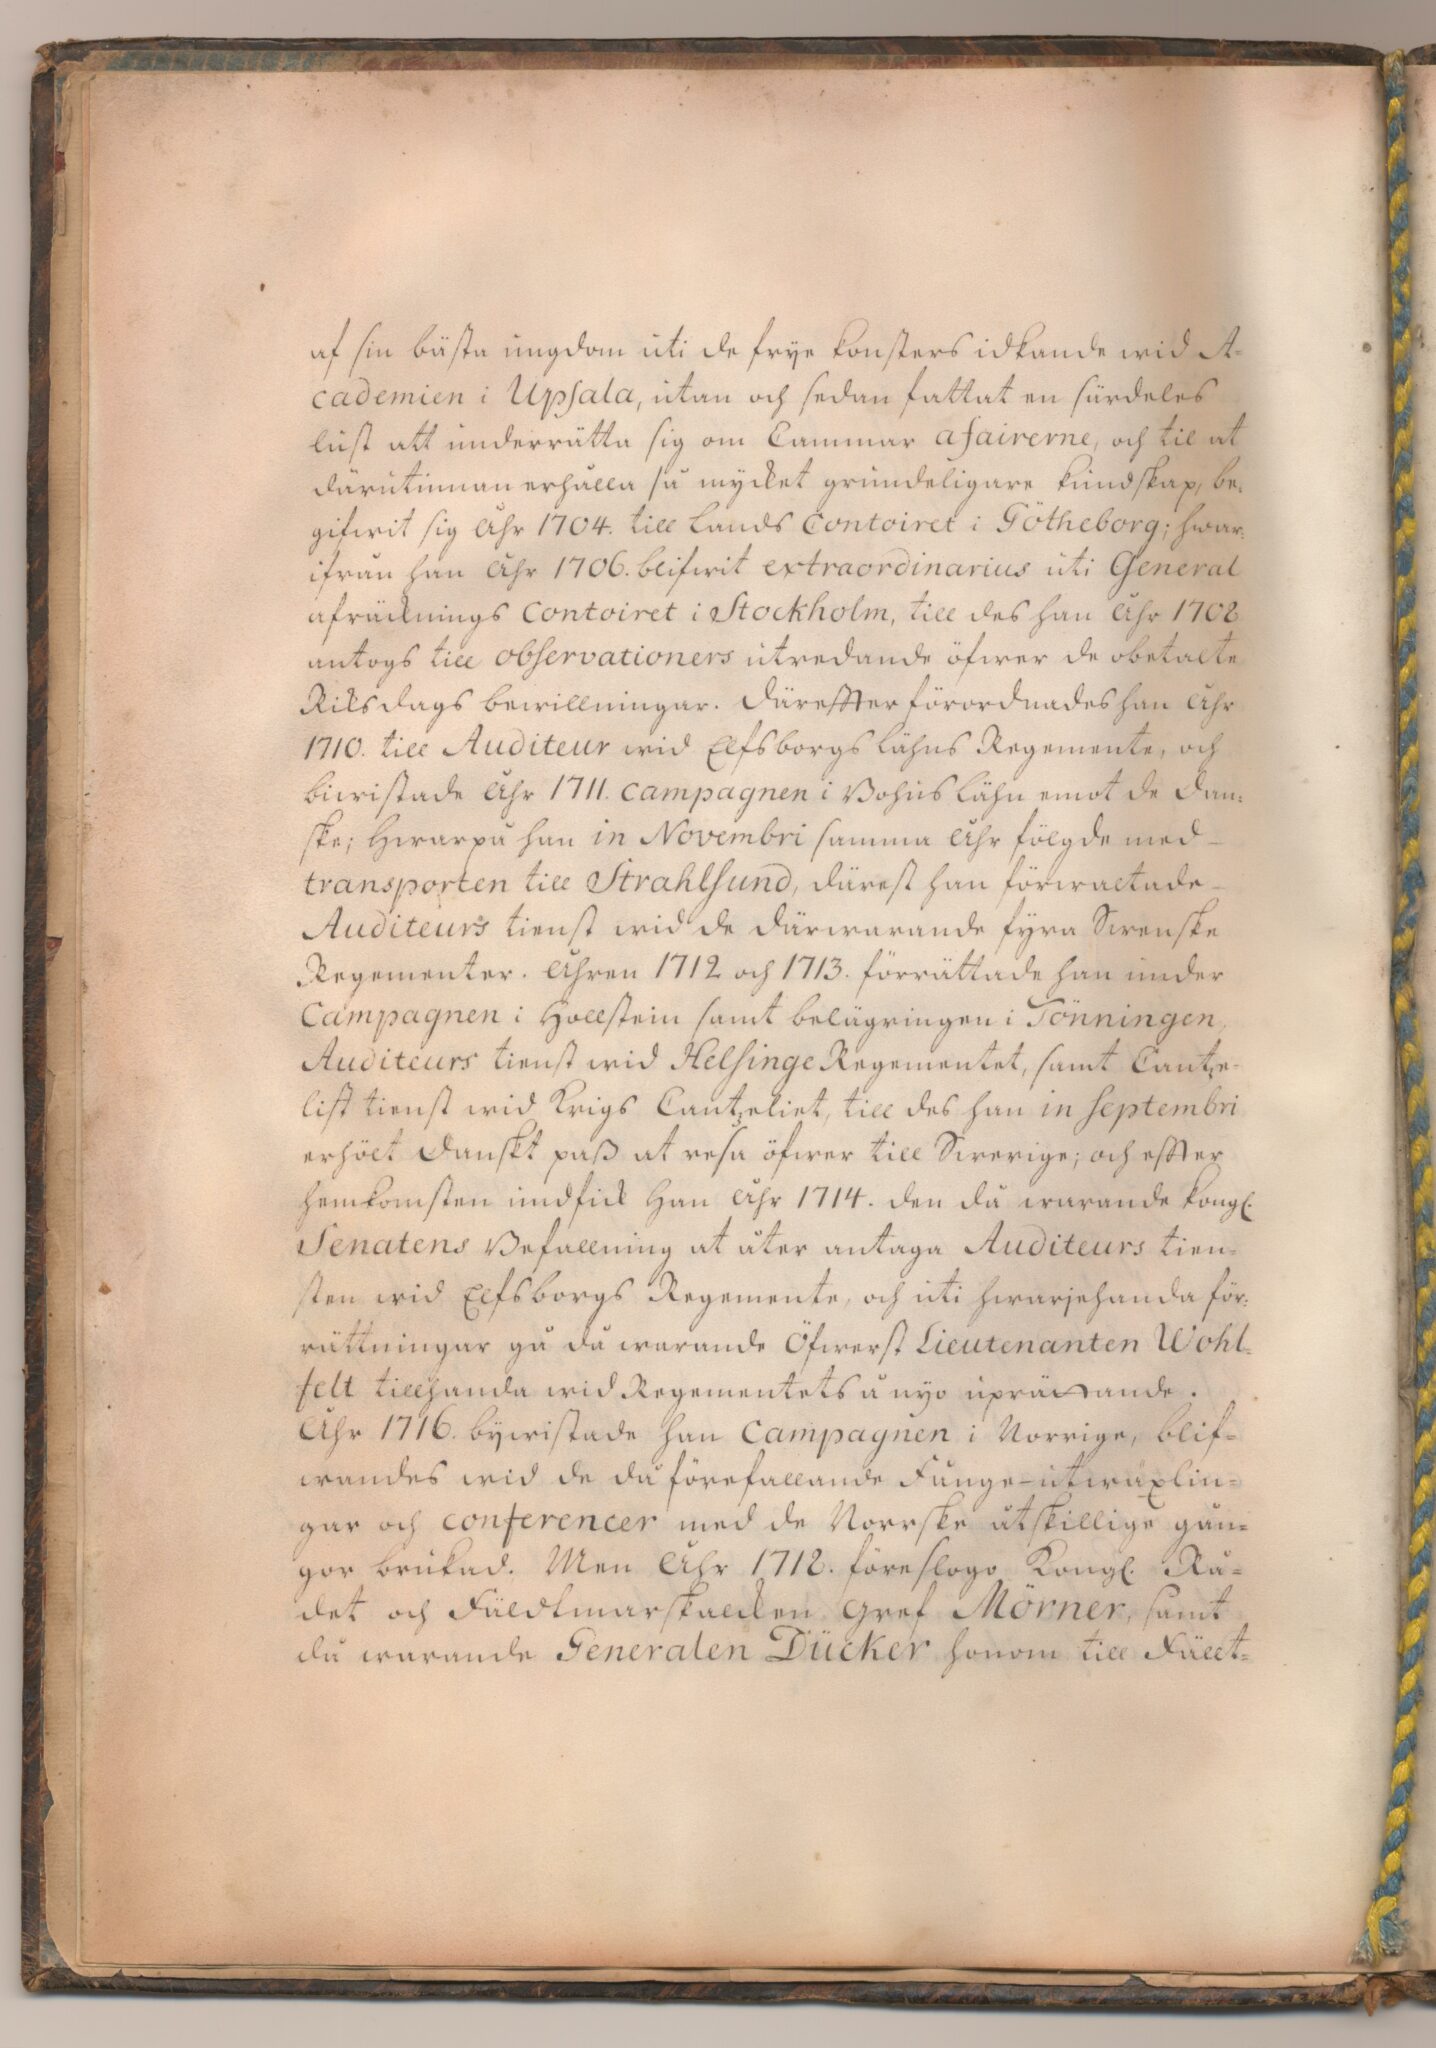 af sin bästa ungdom uti de frye konsters idkande wid A-
cademien i Upsala, utan och sedan fattat en särdeles
lust att underrätta sig om Cammar afairerne, och til at
därutinnan erhålla så mycket grundeligare kundskap, be-
gifwit sig Åhr 1704. till Lands Contoiret i Götheborg; hwar-
ifrån han Åhr 1706. blifwit extraordinarius uti General
afräknings Contoiret i Stockholm, till des han Åhr 1708
antogs till observationers utredande öfwer de obetalte
Riksdags bewillningar. Därefter förordnades han Åhr
1710. till Auditeur wid Elfsborgs Lähns Regemente, och
biwistade Åhr 1711. campagnen i Bohus Lähn emot de Dan-
ske; Hwarpå han in Novembri samma Åhr fölgde med
transporten till Strahlsund, därest han förwaltade
Auditeurs tienst wid de därwarande fyra Swenske
Regementer. Åhren 1712 och 1713. förrättade han under
Campagnen i Hollstein samt belägringen i Tönningen,
Auditeurs tienst wid Helsinge Regementet, samt Cantze-
list tienst wid Krigs Cantzeliet, till des han in septembri
erhölt Danskt pass at resa öfwer till Swerige; och efter
hemkomsten undfick Han Åhr 1714. den då warande Kongl.
Senatens Befallning at åter antaga Auditeurs tien-
sten wid Elfsborgs Regemente, och uti hwarjehanda för-
rättningar gå då warande Öfwerst Lieutenanten Wohl-
felt tillhanda wid Regementets å nyo uprättande.
Åhr 1716. bywistade han Campagnen i Norrige, blif-
wandes wid de då förefallande Fånge-utwäxlin-
gar och conferencer med de Norrske åtskillige gån-
gor brukad. Men Åhr 1718. föreslogo Kongl. Rå-
det och Fäldtmarskalcken Gref Mörner, samt
då warande Generalen Dücker honom till Fällt-